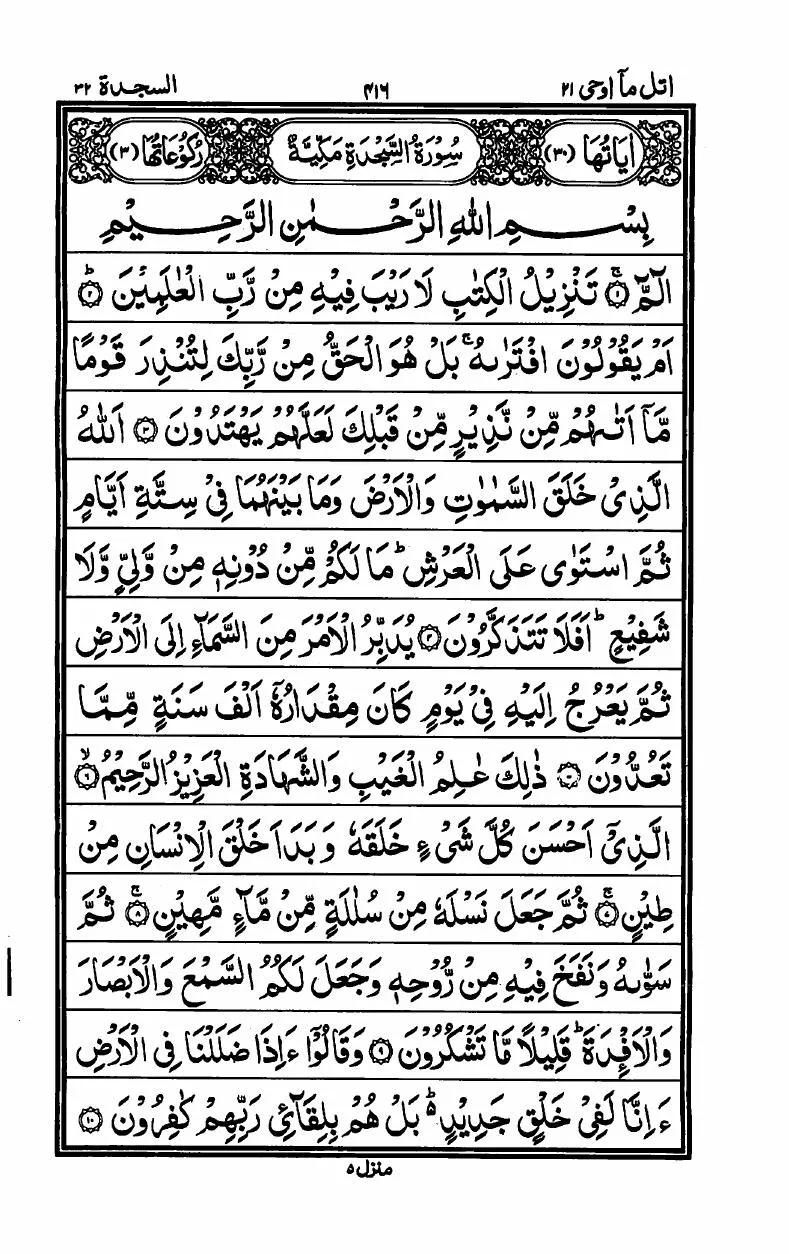 اتل مآ اوحی ۲۱
۴۱۶
السجدۃ ۳۲
اٰیَاتُهَا (۳۰)
سُوْرَةُ السَّجْدَةِ مَكِّيَّةٌ
رُكُوْعَاتُهَا (۳)
بِسْمِ اللّٰهِ الرَّحْمٰنِ الرَّحِيْمِ
الٓمّٓ ۚ﴿۱﴾ تَنْزِيْلُ الْكِتٰبِ لَا رَيْبَ فِيْهِ مِنْ رَّبِّ الْعٰلَمِيْنَ ؕ﴿۲﴾
اَمْ يَقُوْلُوْنَ افْتَرٰىهُ ۚ بَلْ هُوَ الْحَقُّ مِنْ رَّبِّكَ لِتُنْذِرَ قَوْمًا
مَّاۤ اَتٰىهُمْ مِّنْ نَّذِيْرٍ مِّنْ قَبْلِكَ لَعَلَّهُمْ يَهْتَدُوْنَ ﴿۳﴾ اَللّٰهُ
الَّذِيْ خَلَقَ السَّمٰوٰتِ وَالْاَرْضَ وَمَا بَيْنَهُمَا فِيْ سِتَّةِ اَيَّامٍ
ثُمَّ اسْتَوٰى عَلَى الْعَرْشِ ؕ مَا لَكُمْ مِّنْ دُوْنِهٖ مِنْ وَّلِيٍّ وَّلَا
شَفِيْعٍ ؕ اَفَلَا تَتَذَكَّرُوْنَ ﴿۴﴾ يُدَبِّرُ الْاَمْرَ مِنَ السَّمَآءِ اِلَى الْاَرْضِ
ثُمَّ يَعْرُجُ اِلَيْهِ فِيْ يَوْمٍ كَانَ مِقْدَارُهٗۤ اَلْفَ سَنَةٍ مِّمَّا
تَعُدُّوْنَ ﴿۵﴾ ذٰلِكَ عٰلِمُ الْغَيْبِ وَالشَّهَادَةِ الْعَزِيْزُ الرَّحِيْمُ ۙ﴿۶﴾
الَّذِيْۤ اَحْسَنَ كُلَّ شَيْءٍ خَلَقَهٗ وَبَدَاَ خَلْقَ الْاِنْسَانِ مِنْ
طِيْنٍ ۚ﴿۷﴾ ثُمَّ جَعَلَ نَسْلَهٗ مِنْ سُلٰلَةٍ مِّنْ مَّآءٍ مَّهِيْنٍ ۚ﴿۸﴾ ثُمَّ
سَوّٰىهُ وَنَفَخَ فِيْهِ مِنْ رُّوْحِهٖ وَجَعَلَ لَكُمُ السَّمْعَ وَالْاَبْصَارَ
وَالْاَفْـِٕدَةَ ؕ قَلِيْلًا مَّا تَشْكُرُوْنَ ﴿۹﴾ وَقَالُوْۤا ءَاِذَا ضَلَلْنَا فِى الْاَرْضِ
ءَاِنَّا لَفِيْ خَلْقٍ جَدِيْدٍ ؕ۬ بَلْ هُمْ بِلِقَآئِ رَبِّهِمْ كٰفِرُوْنَ ﴿۱۰﴾
منزل ۵